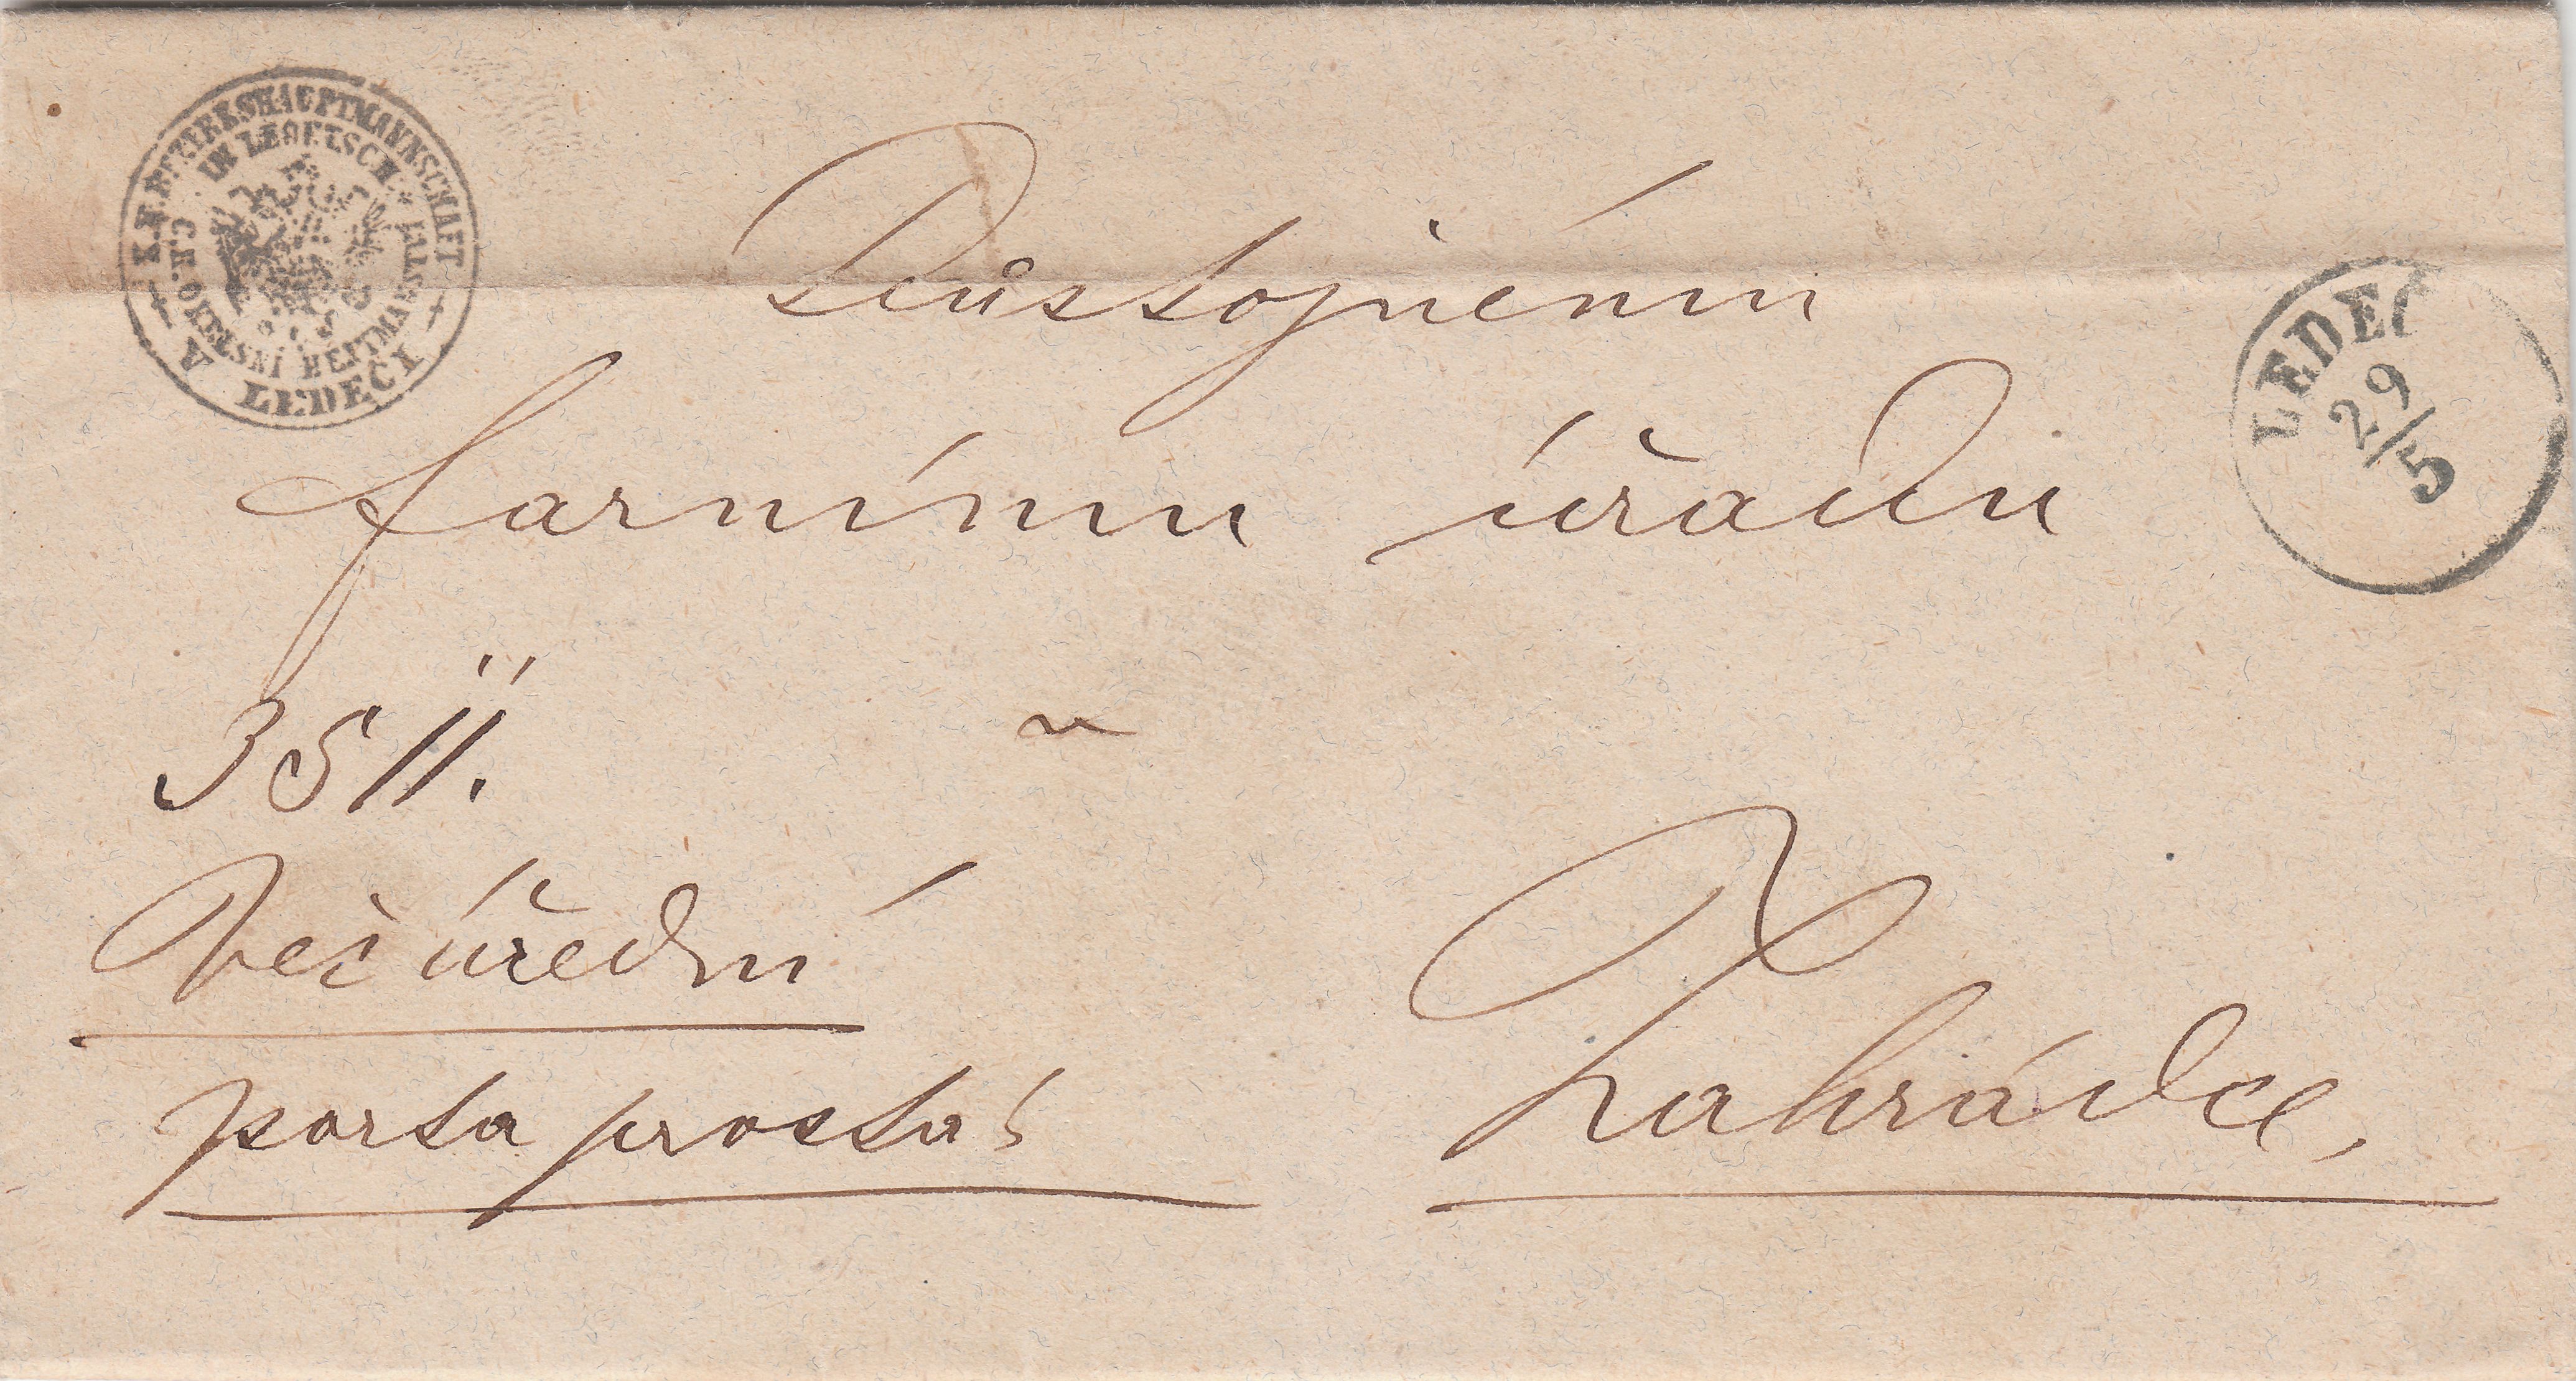 K.K. BEZIRKSHAUPTMANNSCHAFT
IN LEDETSCH.
C.K. OKRESNÍ HEJTMANSTVÍ
V LEDEČI
Důstojnému
farnímu úřadu
LEDEČ
29/5
3511.
v
Věc úřední
porta prosta!
Zahrádce,